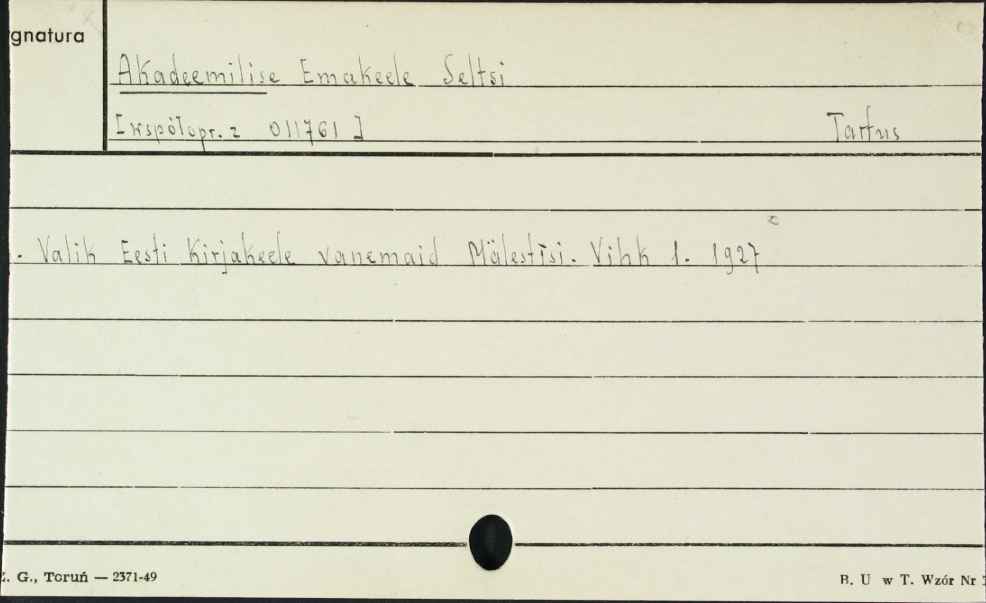 gnatura
Akadeemilise Emakeele Seltsi
[współopr. z 011761] Tartus
. Valik Eesti Kirjakeele vanemaid Mälestisi. Vihk 1. 1927
Z. G., Toruń — 2371-49
B. U w T. Wzór Nr